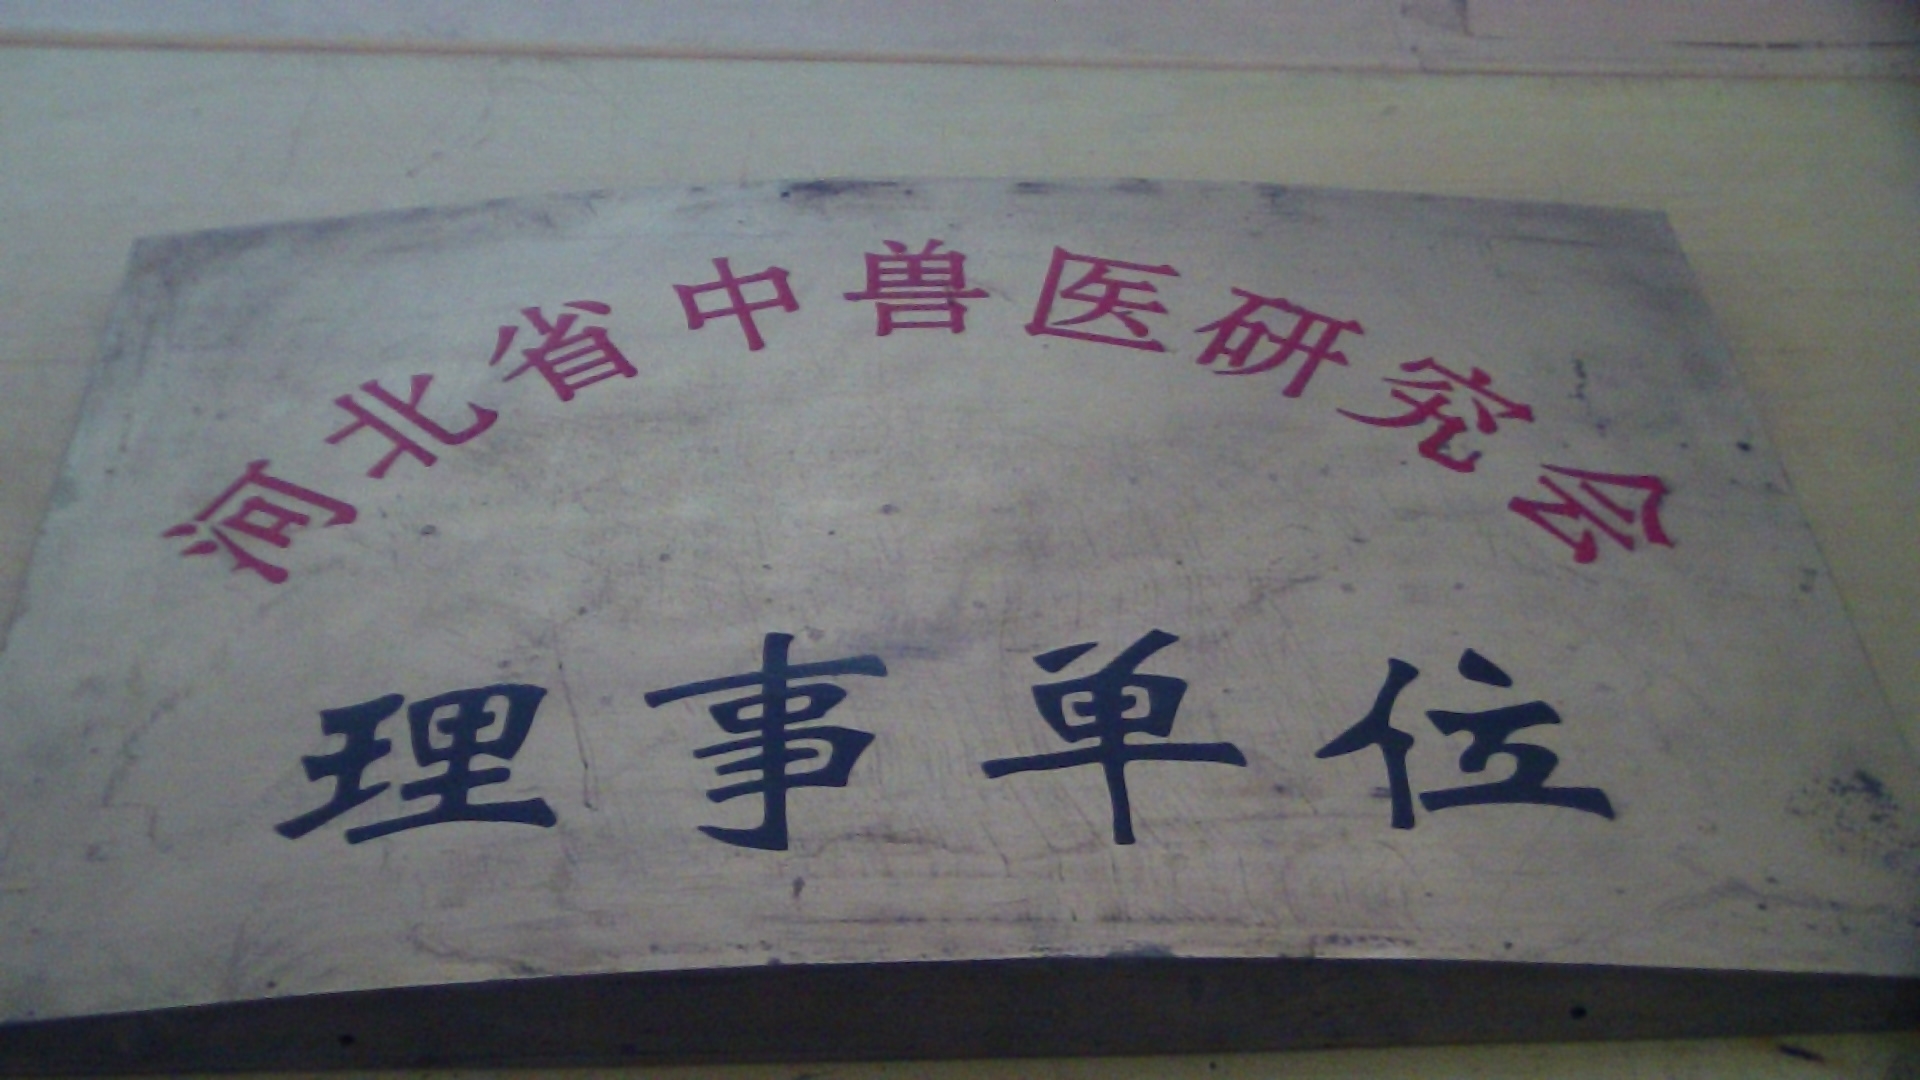 河北省中兽医研究会
理事单位